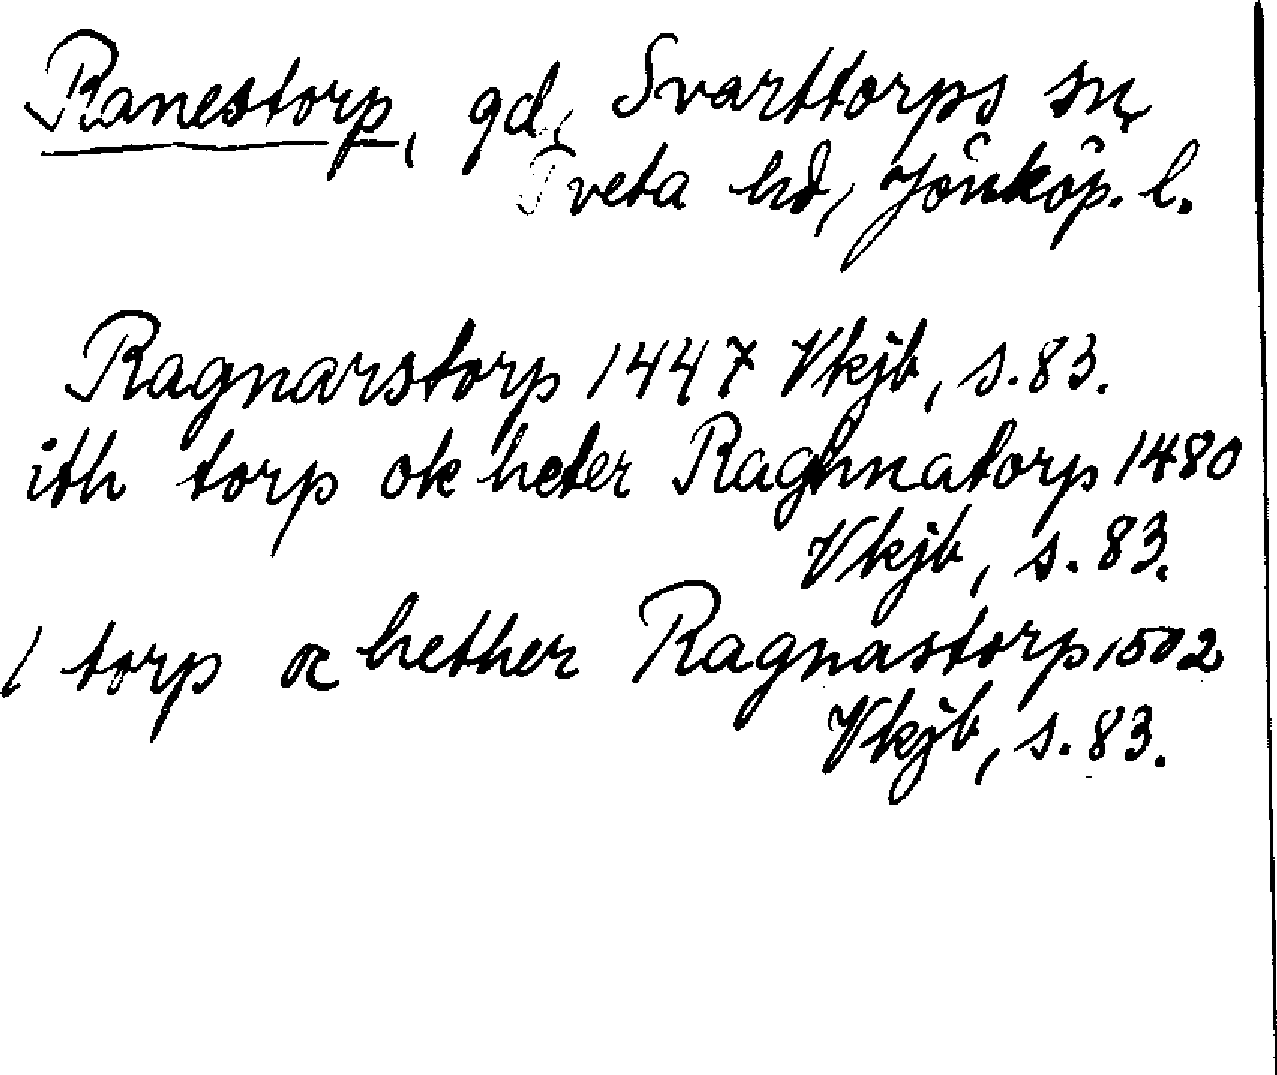 Ranestorp, gd, Svarttorps sn,
Tveta hd, Jönköp. l.
Ragnarstorp 1447 Vkjb, s. 83.
ith torp ok heter Raghnatorp 1480
Vkjb, s. 83.
1 torp oc hether Ragnastorp 1502
Vkjb, s. 83.